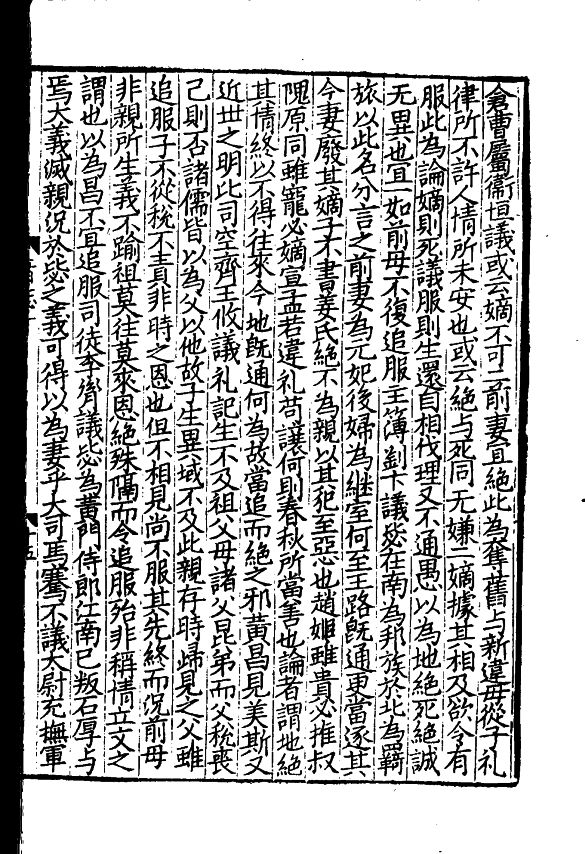 倉曹屬衞恒議或云嫡不可二前妻宜絕此為奪舊与新違母從子礼
律所不許人情所未安也或云絕与死同无嫌二嫡據其相及欲令有
服此為論嫡則死議服則生還自相伐理又不通愚以為地絕死絕誠
无異也宜一如前母不復追服主簿劉卞議毖在南為邦族於北為羇
旅以此名分言之前妻為元妃後婦為継室何至王路旣通更當逐其
今妻廢其嫡子不書姜氏絕不為親以其犯至惡也趙姬雖貴必推叔
隗原同雖寵必嫡宣孟若違礼苟讓何則春秋所當善也論者謂地絕
其情終以不得往來今地旣通何為故當追而絕之邪黃昌見美斯又
近世之明比司空齊王攸議礼記生不及祖父母諸父昆弟而父稅喪
己則否諸儒皆以為父以他故子生異域不及此親存時歸見之父雖
追服子不從稅不責非時之恩也但不相見尚不服其先終而況前母
非親所生義不踰祖莫往莫來恩絕殊隔而令追服殆非稱情立文之
謂也以為昌不宜追服司徒李㣧議毖為黃門侍郎江南已叛石厚与
焉大義滅親況於毖之義可得以為妻乎大司馬騫不議太尉充撫軍
十五